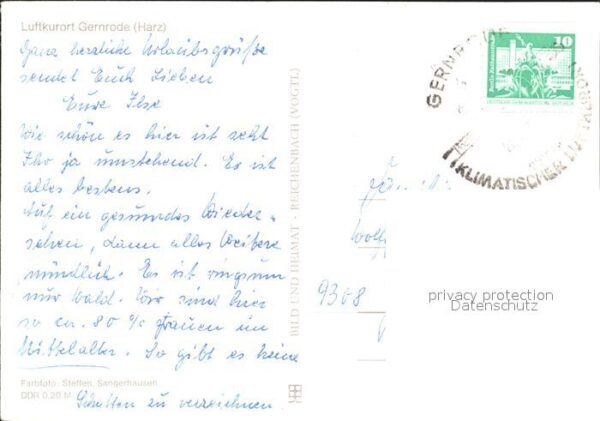 Luftkurort Gernrode (Harz)
Ganz herzliche Urlaubsgrüße
sendet Euch Lieben
Eure Ilse
Wie schön es hier ist seht
Ihr ja umstehend. Es ist
alles bestens.
Auf ein gesundes Wieder-
sehen, dann alles Weitere
mündlich. Es ist ringsum
nur Wald. Wir sind hier
so ca. 80 % Frauen im
Mittelalter. So gibt es keine
Farbfoto: Steffen, Sangerhausen
DDR 0,20 M
Schatten zu verzeichnen
BILD UND HEIMAT · REICHENBACH (VOGTL)
10
GERNRODE
KLIMATISCHER LUFTKURORT
9308
privacy protection
Datenschutz